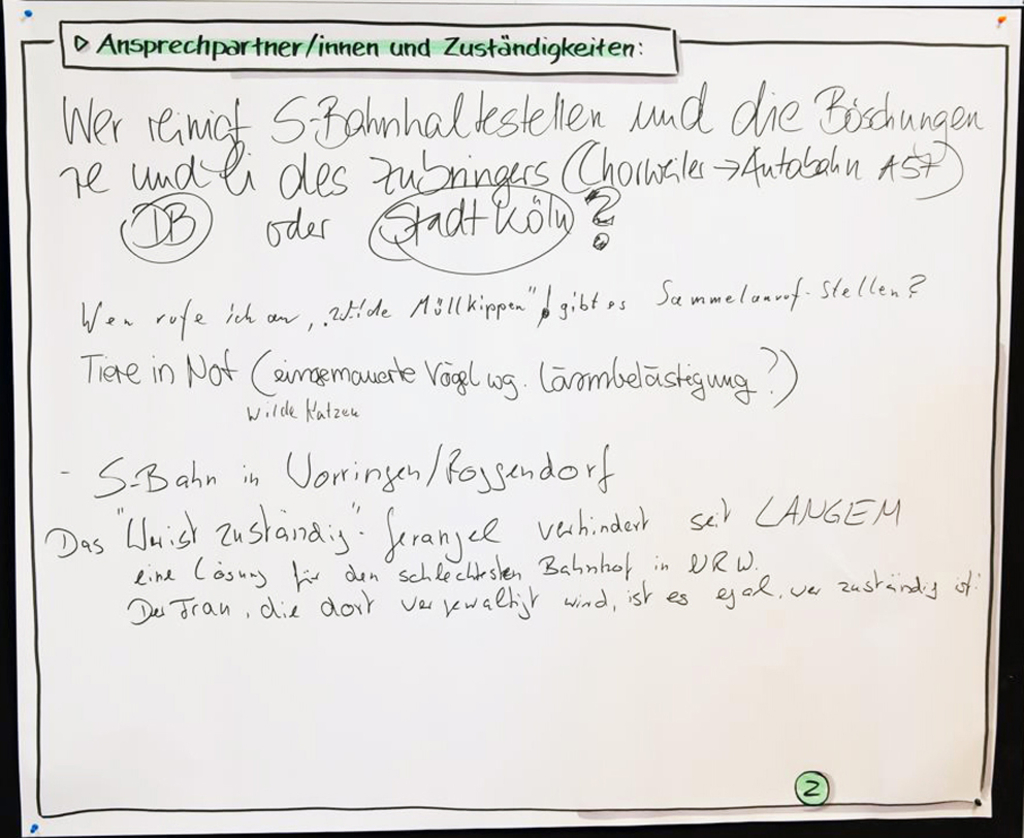 ▷ Ansprechpartner/innen und Zuständigkeiten:
Wer reinigt S-Bahnhaltestellen und die Böschungen
re und li des Zubringers (Chorweiler → Autobahn A57)
DB oder Stadt Köln?
Wen rufe ich an, "Wilde Müllkippen", gibt es Sammelanruf-Stellen?
Tiere in Not (eingemauerte Vögel wg. Lärmbelästigung?)
Wilde Katzen
- S-Bahn in Worringen/Roggendorf
Das "Wer ist zuständig"-Gerangel verhindert seit LANGEM
eine Lösung für den schlechtesten Bahnhof in NRW.
Der Frau, die dort vergewaltigt wird, ist es egal, wer zuständig ist!
2